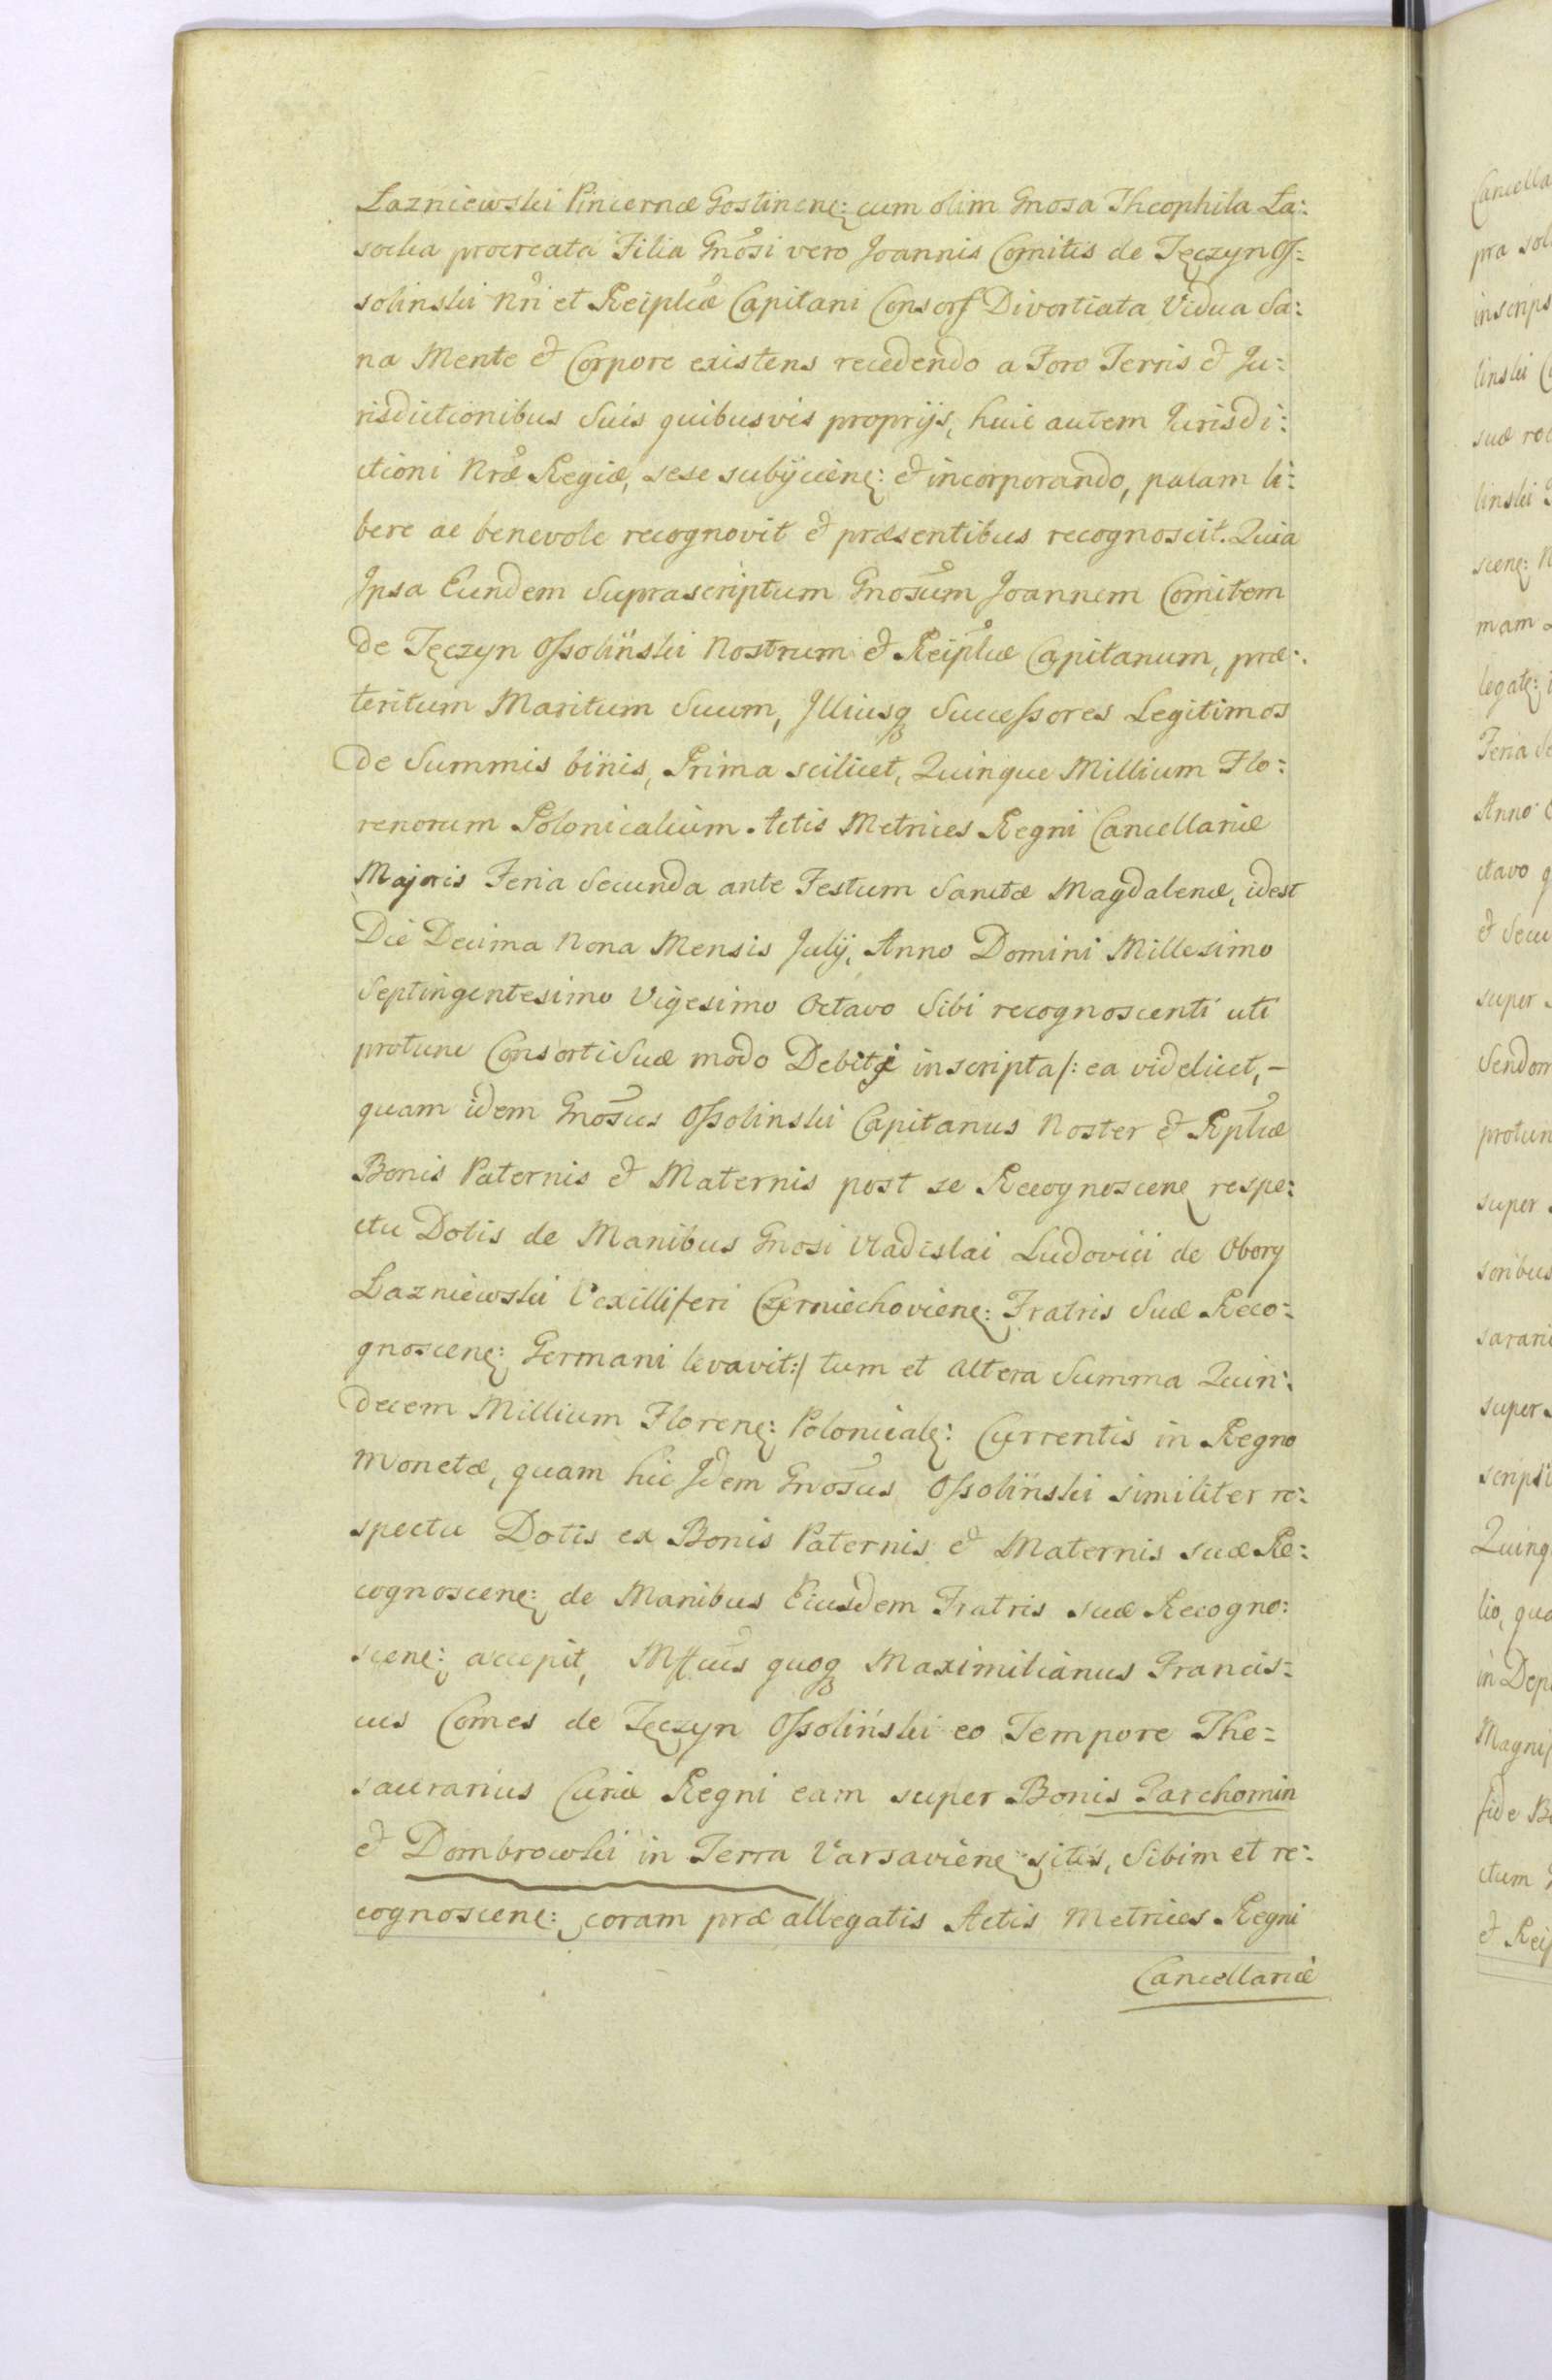 Lazniewski Pincernæ Gostinenę: cum olim Gnosa Theophila La:
socka procreata Filia Gnosi vero Joannis Comitis de Tęczyn Os=
solinski Nri et Reiplicæ Capitani Consors Divortiata Vidua Sa:
na Mente & Corpore existens recedendo a Foro Terris & Ju=
risdictionibus Suis quibusvis proprijs, huic autem Jurisdi:
ctioni Nræ Regiæ, sese subijcienę: & incorporando, palam li:
bere ac benevole recognovit & præsentibus recognoscit. Quia
Ipsa Eundem Suprascriptum Gnosum Joannem Comitem
de Tęczyn Ossoliński Nostrum & Reiplicæ Capitanum, præ:
teritum Maritum Suum, Illiusq Successores Legitimos
de Summis binis, Prima scilicet, Quinque Millium Flo:
renorum Polonicalium Actis Metrices Regni Cancellariæ
Majoris Feria Secunda ante Festum Sanctæ Magdalenæ, idest
Die Decima Nona Mensis Julij, Anno Domini Millesimo
Septingentesimo Vigesimo Octavo Sibi recognoscenti uti
protunc Consorti Suæ modo Debiti inscripta /: ea videlicet, –
quam idem Gnosus Ossolinski Capitanus Noster & Rplicæ
Bonis Paternis & Maternis post se Recognoscenę respe:
ctu Dotis de Manibus Gnosi Vladislai Ludovici de Obory
Lazniewski Vexilliferi Czerniechovienę: Fratris Suæ Reco=
gnoscenę: Germani levavit :/ tum et altera Summa Quin:
decem Millium Florenę: Polonicalę: Currentis in Regno
Monetæ, quam hic Idem Gnosus Ossoliński similiter re:
spectu Dotis ex Bonis Paternis & Maternis suæ Re:
cognoscenę: de Manibus Eiusdem Fratris suæ Recogno:
scenę: accepit, Mfficus quoq Maximilianus Francis=
cus Comes de Tęczyn Ossoliński eo Tempore The=
saurarius Curiæ Regni eam super Bonis Parchomin
& Dombrowki in Terra Varsavienę sitis, Sibimet re:
cognoscenę: coram præallegatis Actis Metrices Regni
Cancellariæ